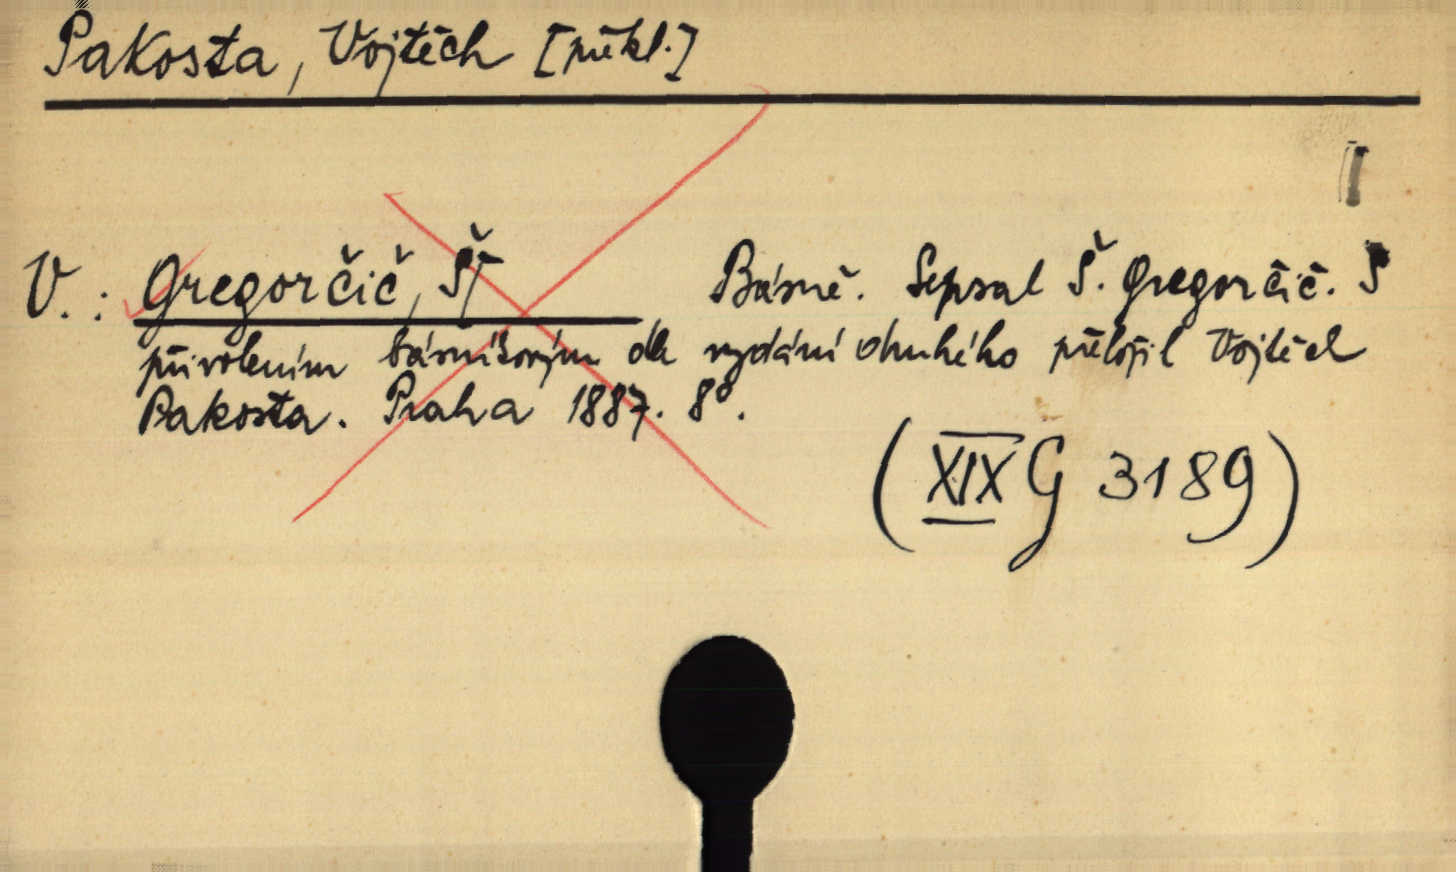 Pakosta, Vojtěch [překl.]
I
V.: Gregorčič, Š/ Básně. Sepsal Š. Gregorčič. S
přivolením básníkovým dle vydání druhého přeložil Vojtěch
Pakosta. Praha 1887. 8°.
(XIX G 3189)